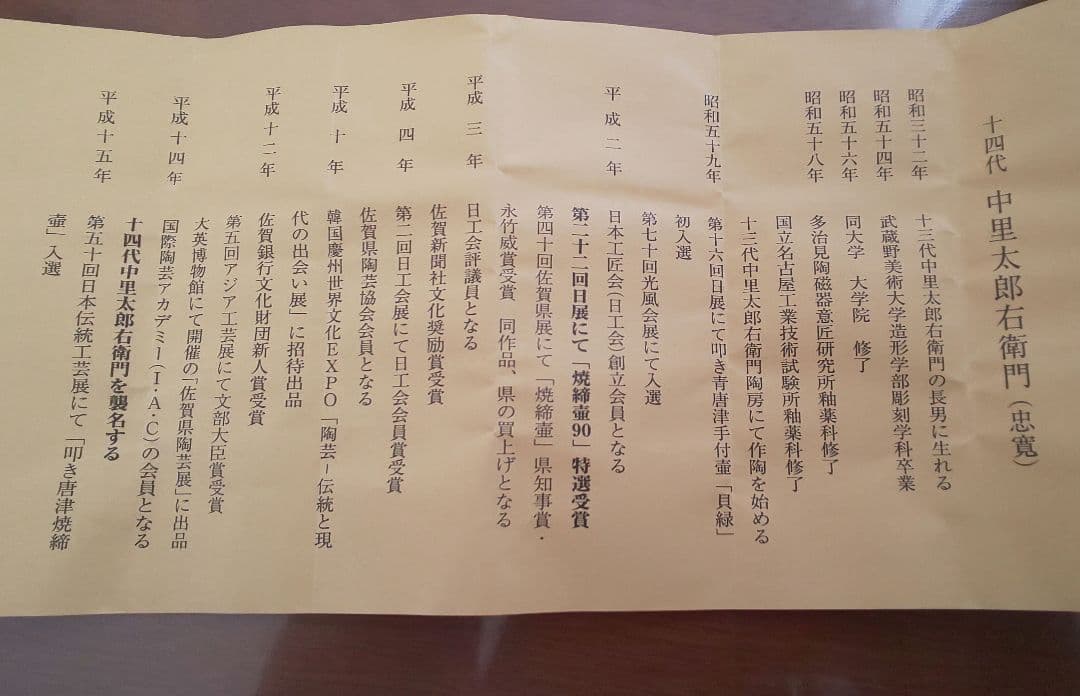 十四代 中里太郎右衛門（忠寛）
昭和三十二年 十三代中里太郎右衛門の長男に生れる
昭和五十四年 武蔵野美術大学造形学部彫刻学科卒業
昭和五十六年 同大学 大学院 修了
昭和五十八年 多治見陶磁器意匠研究所釉薬科修了
国立名古屋工業技術試験所釉薬科修了
十三代中里太郎右衛門陶房にて作陶を始める
昭和五十九年 第十六回日展にて叩き青唐津手付壷「貝緑」
初入選
第七十回光風会展にて入選
平成二年 日本工匠会（日工会）創立会員となる
第二十二回日展にて「焼締壷90」特選受賞
第四十回佐賀県展にて「焼締壷」県知事賞・
永竹威賞受賞 同作品、県の買上げとなる
平成三年 日工会評議員となる
佐賀新聞社文化奨励賞受賞
平成四年 第二回日工会展にて日工会会員賞受賞
佐賀県陶芸協会会員となる
平成十年 韓国慶州世界文化EXPO「陶芸－伝統と現
代の出会い展」に招待出品
平成十二年 佐賀銀行文化財団新人賞受賞
第五回アジア工芸展にて文部大臣賞受賞
大英博物館にて開催の「佐賀県陶芸展」に出品
平成十四年 国際陶芸アカデミー（I・A・C）の会員となる
十四代中里太郎右衛門を襲名する
平成十五年 第五十回日本伝統工芸展にて「叩き唐津焼締
壷」入選